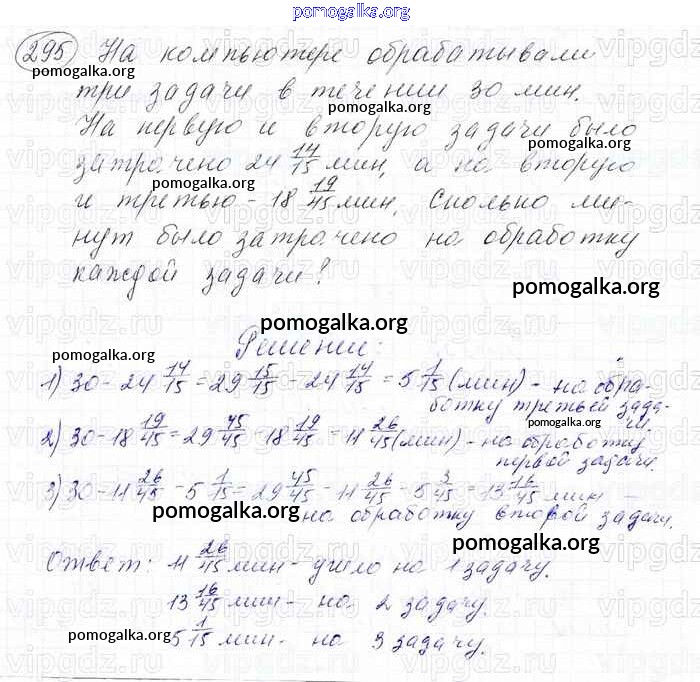 pomogalka.org
295 На компьютере обрабатывали
pomogalka.org
три задачи в течении 30 мин.
pomogalka.org
На первую и вторую задачи было
pomogalka.org
затрачено 24 14/15 мин, а на вторую
pomogalka.org
и третью - 18 19/45 мин. Сколько ми-
нут было затрачено на обработку
каждой задачи?
pomogalka.org
pomogalka.org
Решение:
pomogalka.org
1) 30 - 24 14/15 = 29 15/15 - 24 14/15 = 5 1/15 (мин) - на обра-
ботку третьей зада-
чи.
pomogalka.org
2) 30 - 18 19/45 = 29 45/45 - 18 19/45 = 11 26/45 (мин) - на обработку
первой задачи.
3) 30 - 11 26/45 - 5 1/15 = 29 45/45 - 11 26/45 - 5 3/45 = 13 16/45 мин -
pomogalka.org
на обработку второй задачи.
pomogalka.org
Ответ: 11 26/45 мин - ушло на 1 задачу.
13 16/45 мин - на 2 задачу.
pomogalka.org
5 1/15 мин - на 3 задачу.
vipgdz.ru